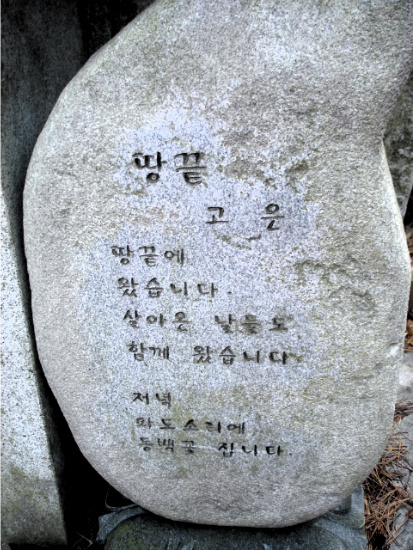 땅끝
고 은
땅끝에
왔습니다.
살아온 날들도
함께 왔습니다
저녁
파도소리에
동백꽃 집니다.